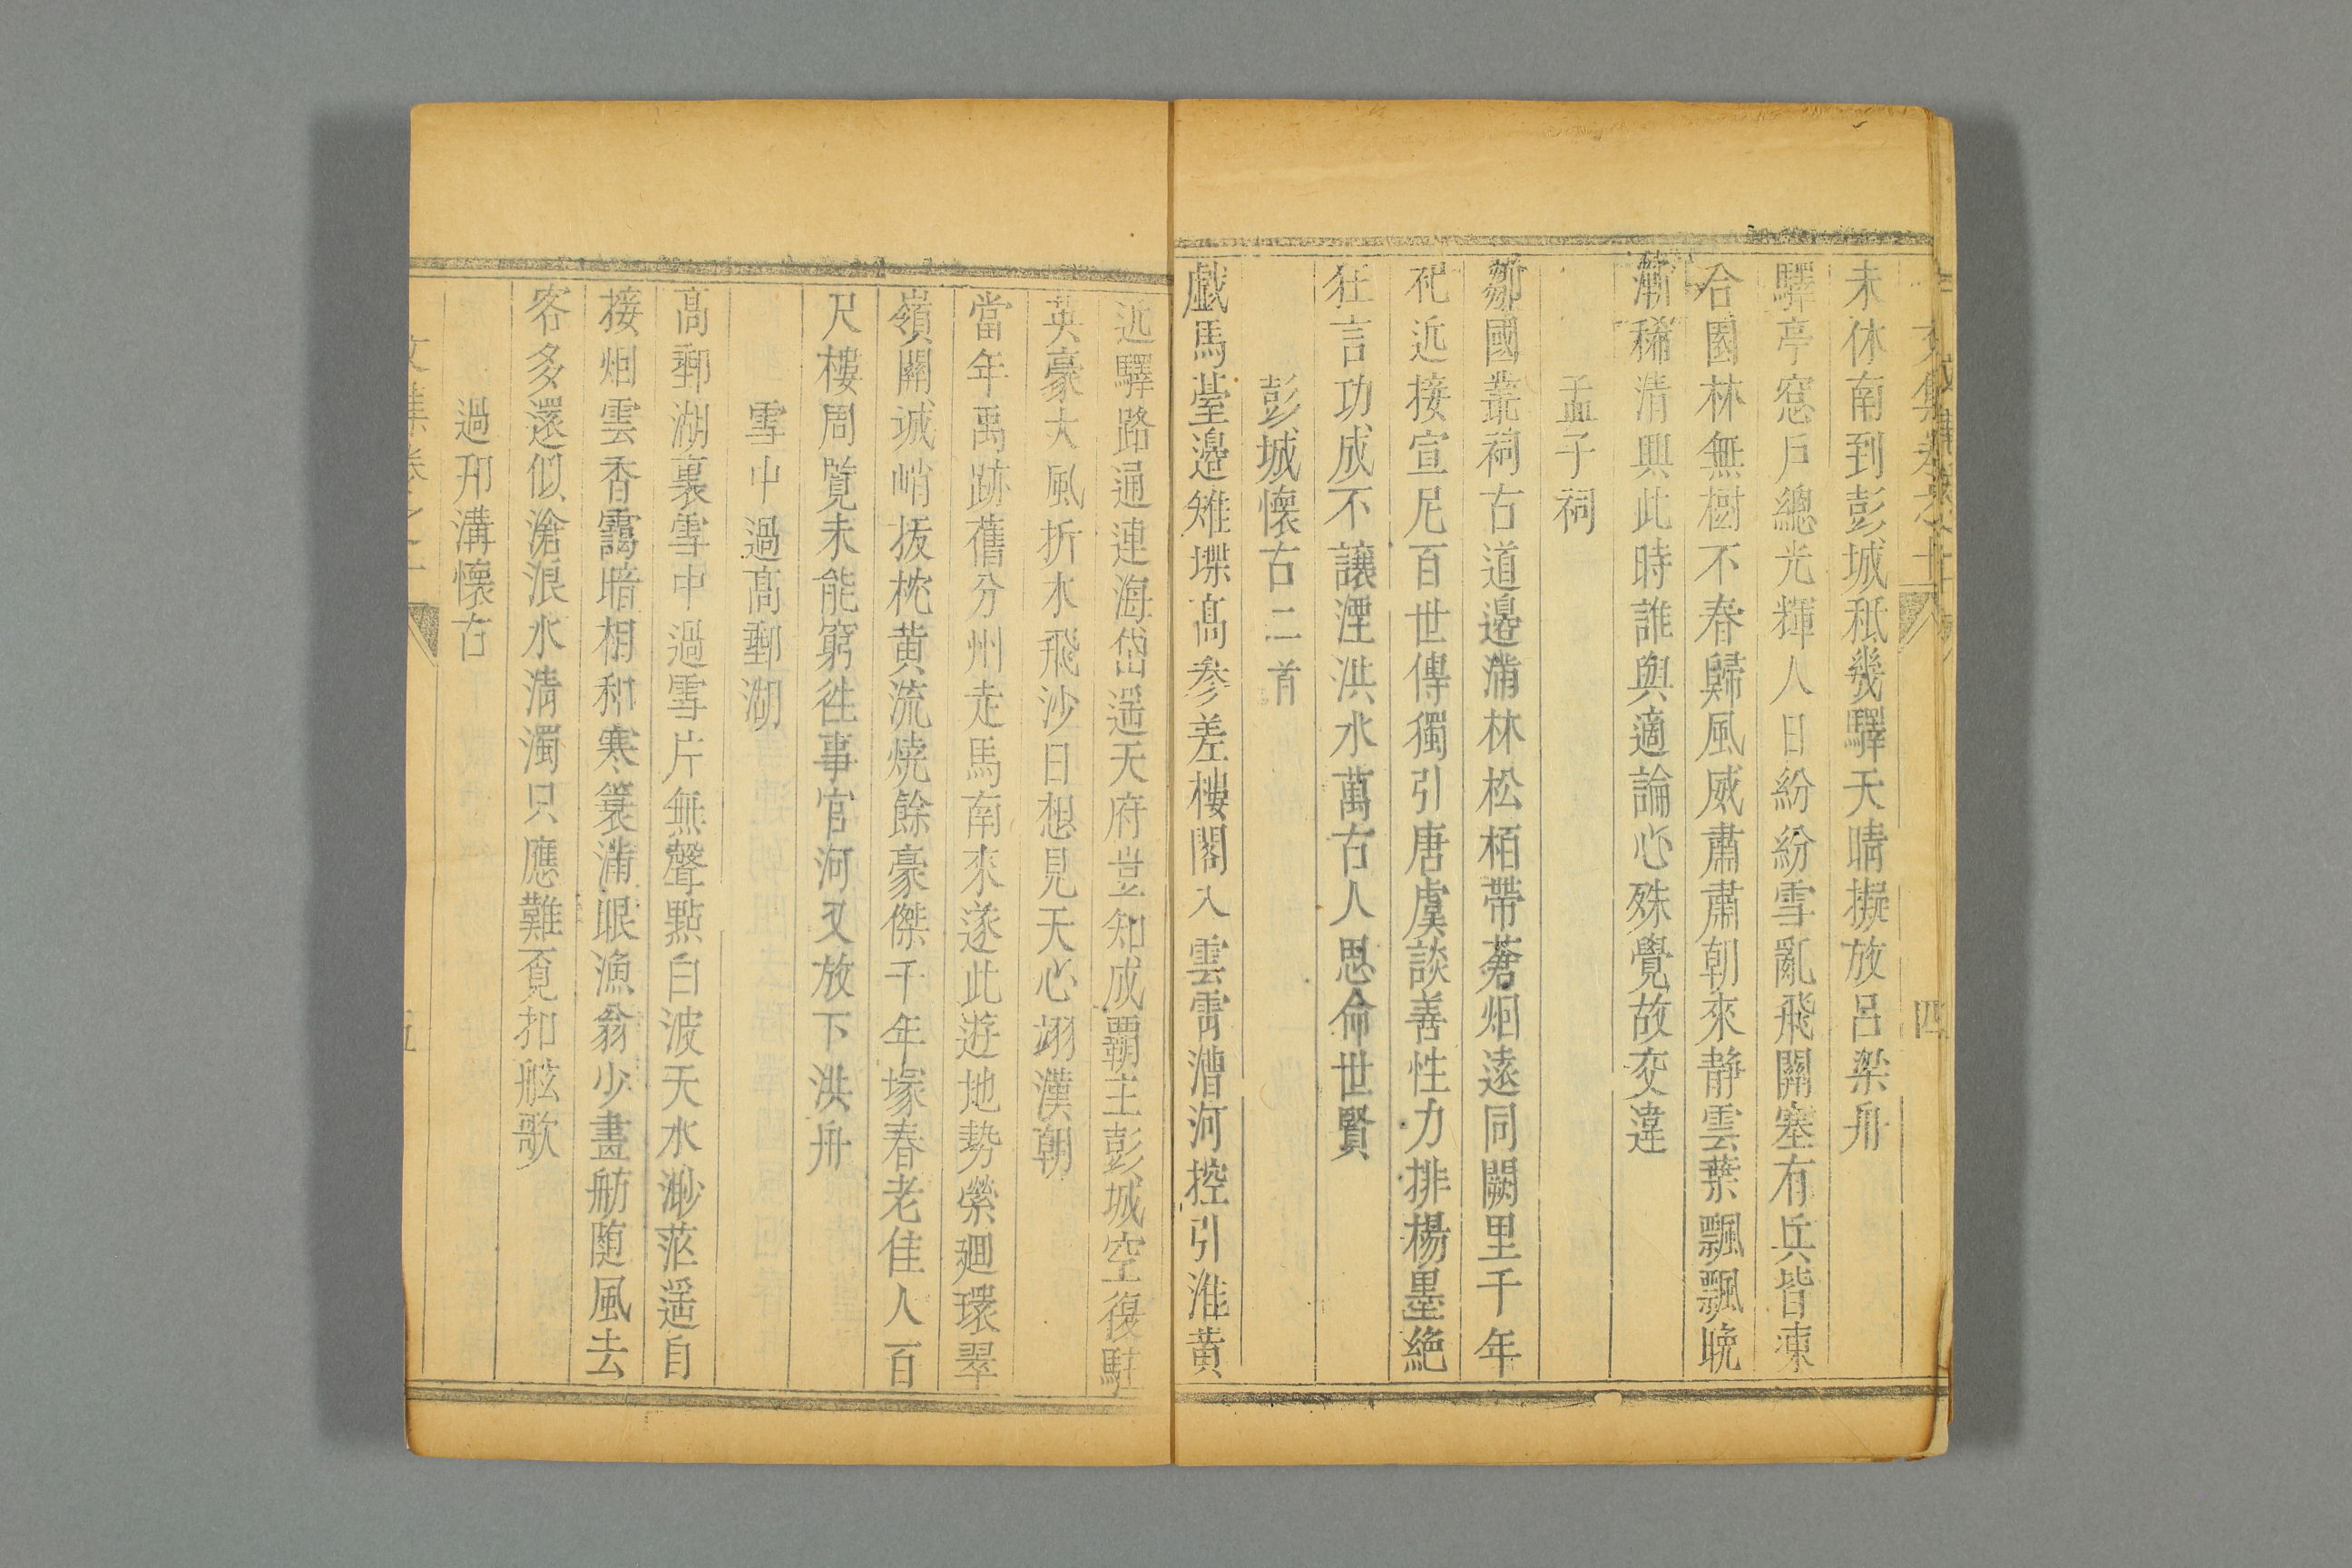 未休南到彭城秪幾驛天晴擬放呂梁舟
驛亭窓戶總光輝人日紛紛雪亂飛關塞有兵皆凍
合園林無樹不春歸風威肅肅朝來靜雲葉飄飄晚
漸稀清興此時誰與適論心殊覺故交違
孟子祠
鄒國叢祠古道邊滿林松栢帶蒼烟遠同闕里千年
祀近接宣尼百世傳獨引唐虞談善性力排楊墨絶
狂言功成不讓湮洪水萬古人思命世賢
彭城懷古二首
戯馬䑓邊雉堞髙參差樓閣入雲霄漕河控引淮黄
近驛路通連海岱遥天府豈知成覇主彭城空復駐
英豪大風折木飛沙日想見天心翊漢朝
當年禹跡舊分州走馬南來遂此遊地勢縈廻環翠
嶺關诚峭拔枕黄流燒餘豪傑千年塚春老佳人百
尺樓周覧未能窮徃事官河又放下洪舟
雪中過髙郵湖
髙郵湖裏雪中過雪片無聲點白波天水渺茫遥自
接烟雲杳靄暗相和寒簑滿眼漁翁少畫舫随風去
客多還似滄浪水清濁只應難覔扣舷歌
過邗溝懷古
四
五